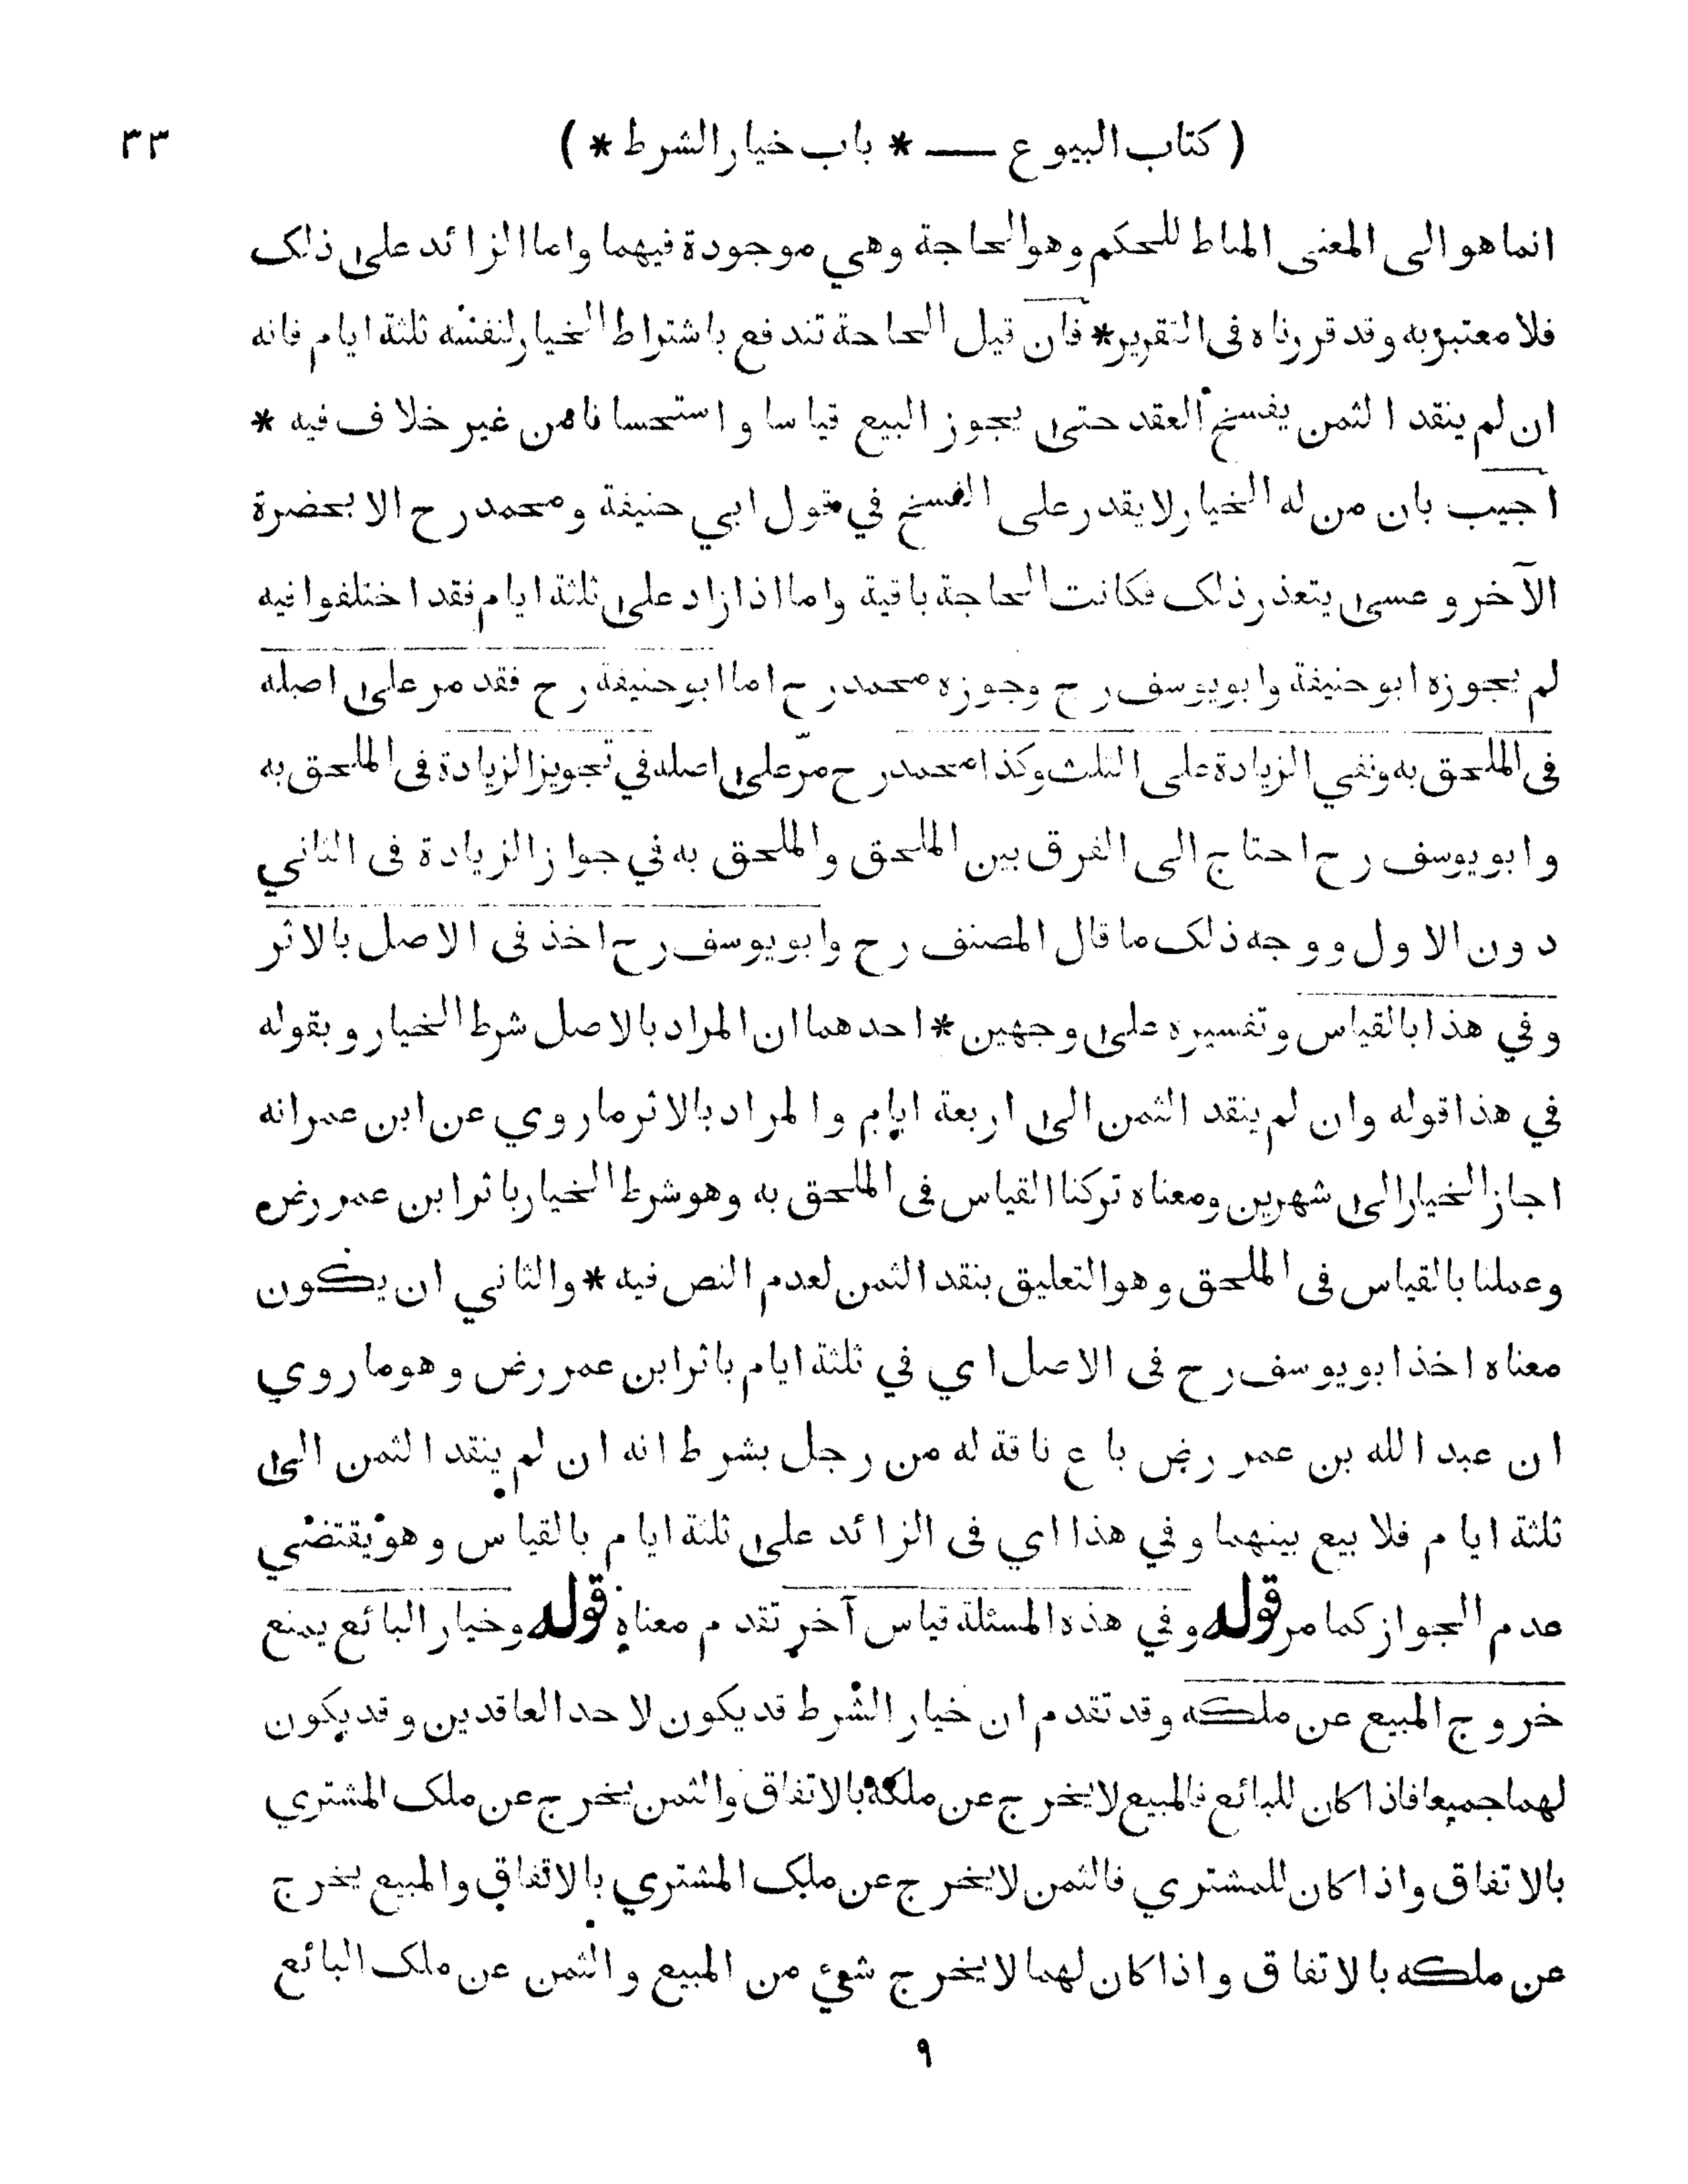 ( كتاب البيوع — * باب خيار الشرط * ) ٣٣
انما هو الى المعنى المناط للحكم وهو الحاجة وهي موجودة فيهما واما الزائد على ذلك
فلا معتبر به وقد قررناه فى التقرير * فان قيل الحاجة تندفع باشتراط الخيار لنفسه ثلثة ايام فانه
ان لم ينقد الثمن يفسخ العقد حتى يجوز البيع قياسا و استحسانا من غير خلاف فيه *
اجيب بان من له الخيار لا يقدر على الفسخ في قول ابي حنيفة ومحمد رح الا بحضرة
الآخر وعسى يتعذر ذلك فكانت الحاجة باقية واما اذا زاد على ثلثة ايام فقد اختلفوا فيه
لم يجوزه ابو حنيفة وابويوسف رح وجوزه محمد رح اما ابو حنيفة رح فقد مر على اصله
فى الملحق به ونفي الزيادة على الثلث وكذا محمد رح مرّ على اصله في تجويز الزيادة فى الملحق به
وابو يوسف رح احتاج الى الفرق بين الملحق والملحق به في جواز الزيادة فى الثاني
دون الاول ووجه ذلك ما قال المصنف رح وابويوسف رح اخذ فى الاصل بالاثر
وفي هذا بالقياس وتفسيره على وجهين * احدهما ان المراد بالاصل شرط الخيار وبقوله
في هذا قوله وان لم ينقد الثمن الى اربعة ايام والمراد بالاثر ما روي عن ابن عمر انه
اجاز الخيار الى شهرين ومعناه تركنا القياس فى الملحق به وهو شرط الخيار باثر ابن عمر رض
وعملنا بالقياس فى الملحق وهو التعليق بنقد الثمن لعدم النص فيه * والثاني ان يكون
معناه اخذ ابو يوسف رح فى الاصل اي في ثلثة ايام باثر ابن عمر رض وهو ما روي
ان عبد الله بن عمر رض باع ناقة له من رجل بشرط انه ان لم ينقد الثمن الى
ثلثة ايام فلا بيع بينهما وفي هذا اي فى الزائد على ثلثة ايام بالقياس وهو يقتضي
عدم الجواز كما مر قوله وفي هذه المسئلة قياس آخر تقدم معناه قوله وخيار البائع يمنع
خروج المبيع عن ملكه وقد تقدم ان خيار الشرط قد يكون لاحد العاقدين وقد يكون
لهما جميعا فاذا كان للبائع فالمبيع لا يخرج عن ملكه بالاتفاق والثمن يخرج عن ملك المشتري
بالاتفاق واذا كان للمشتري فالثمن لا يخرج عن ملك المشتري بالاتفاق والمبيع يخرج
عن ملكه بالاتفاق واذا كان لهما لا يخرج شئ من المبيع والثمن عن ملك البائع
٩